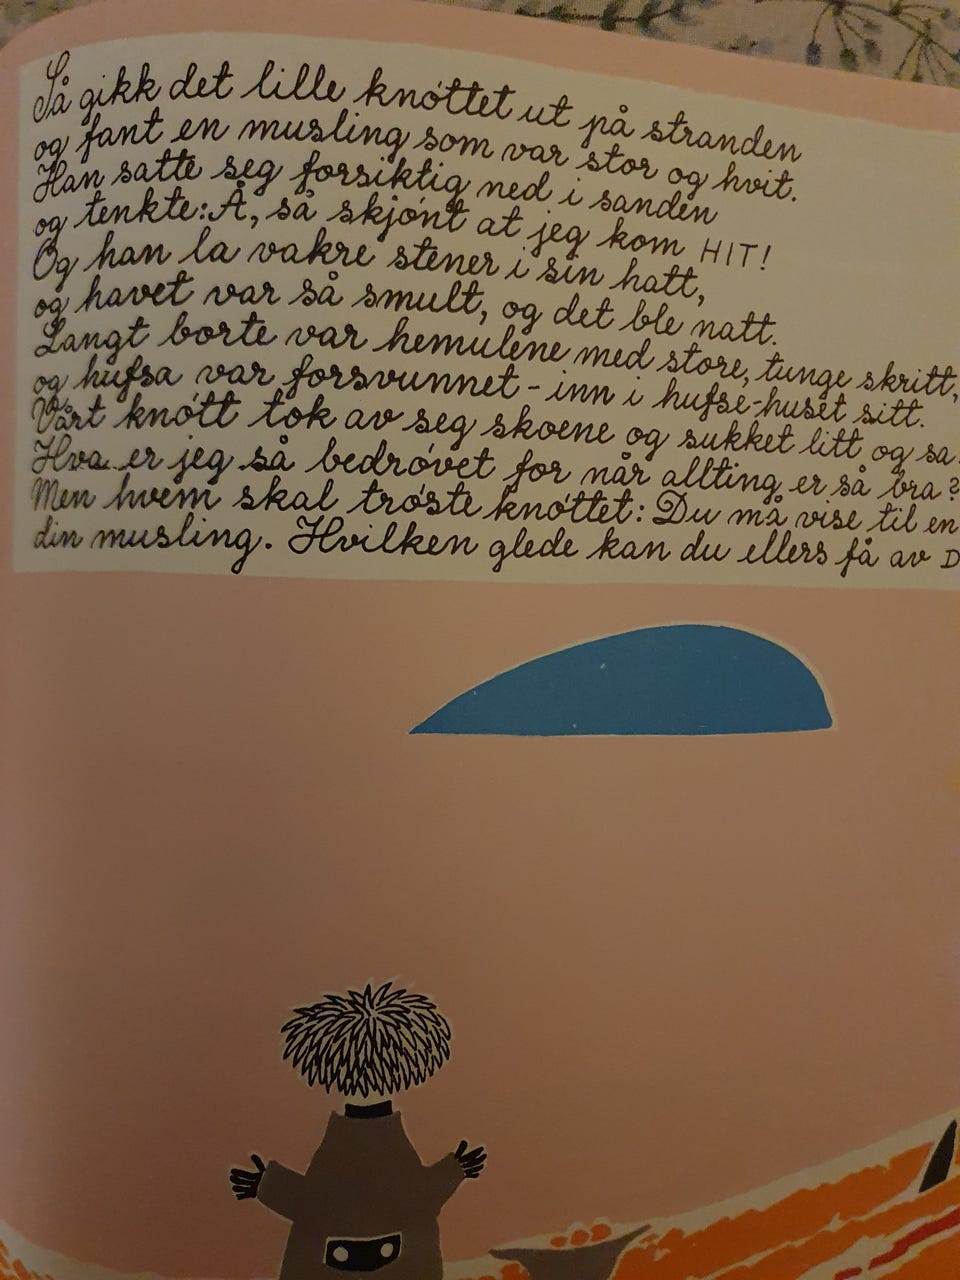 Så gikk det lille knøttet ut på stranden
og fant en musling som var stor og hvit.
Han satte seg forsiktig ned i sanden
og tenkte: Å, så skjønt at jeg kom HIT!
Og han la vakre stener i sin hatt,
og havet var så smult, og det ble natt.
Langt borte var hemulene med store, tunge skritt,
og hufsa var forsvunnet - inn i hufse-huset sitt.
Vårt knøtt tok av seg skoene og sukket litt og sa
Hva er jeg så bedrøvet for når allting er så bra?
Men hvem skal trøste knøttet: Du må vise til en
din musling. Hvilken glede kan du ellers få av D